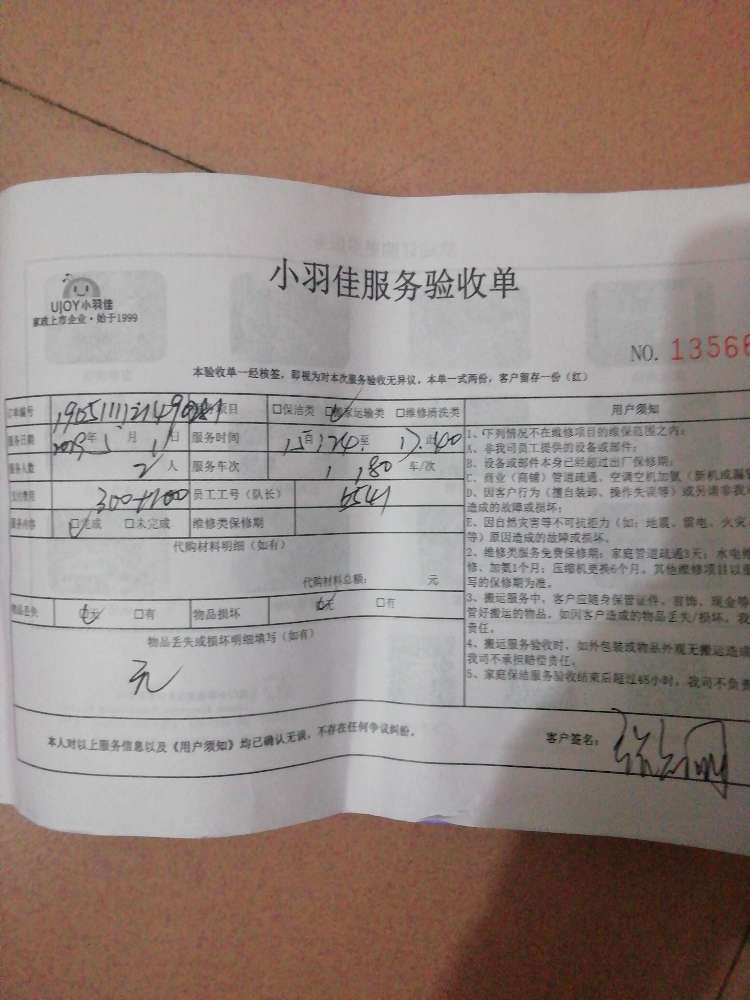 UJOY小羽佳
家政上市企业·始于1999
小羽佳服务验收单
NO. 13566
本验收单一经核签，即视为对本次服务验收无异议，本单一式两份，客户留存一份（红）
订单编号 项目 □保洁类 家运输类 □维修清洗类
服务日期 2019年 月 日 服务时间 至 止
服务人数 2 人 服务车次 1 180 车/次
支付费用 300+100 员工工号（队长） 5541
服务内容 □完成 □未完成 维修类保修期
代购材料明细（如有）
代购材料总额： 元
物品丢失 □有 物品损坏 □有
物品丢失或损坏明细填写（如有）
无
本人对以上服务信息以及《用户须知》均已确认无误，不存在任何争议纠纷。
客户签名：
用户须知
1、下列情况不在维修项目的维保范围之内：
A、非我司员工提供的设备或部件；
B、设备或部件本身已经超过出厂保修期；
C、商业（商铺）管道疏通、空调空机加氨（新机或漏
D、因客户行为（擅自装卸、操作失误等）或另请非我
造成的故障或损坏；
E、因自然灾害等不可抗拒力（如：地震、雷电、火灾
等）原因造成的故障或损坏。
2、维修类服务免费保修期：家庭管道疏通3天；水电维
修、加氨1个月；压缩机更换6个月。其他维修项目以服
写的保修期为准。
3、搬运服务中，客户应随身保管证件、首饰、现金等
管好搬运的物品，如因客户造成的物品丢失/损坏，我
责任。
4、搬运服务验收时，如外包装或物品外观无搬运造成
我司不承担赔偿责任。
5、家庭保洁服务验收结束后超过48小时，我司不负责